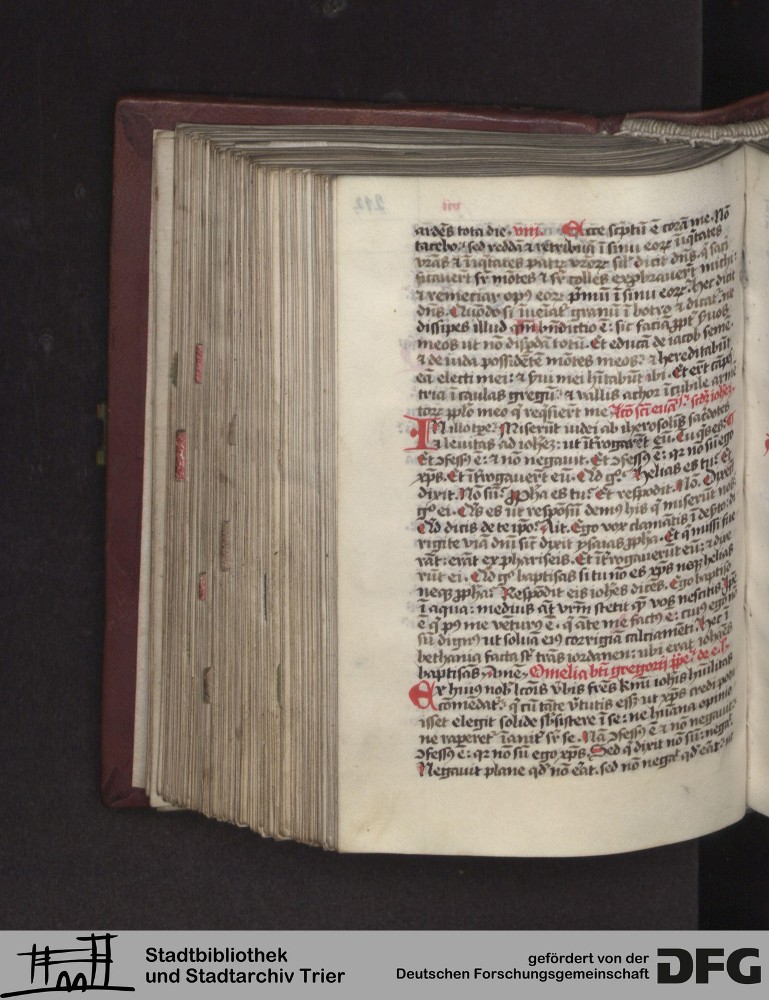 ardēs tota die. viii. Ecce scͥptū ē corā me. Nō
tacebo: sed reddā & retribuā ī sinu eorꝝ īiq̄tates
vrās & īiq̄tates patrꝝ vrorꝝ sil' dicit dn̄s. q̄ sacͥ
ficauert sr̄ mōtes & sr̄ colles exprobrauert michi.
& remeciar opꝰ eorꝝ pͥmū ī sinu eorꝝ. Hec dicit
dn̄s. Quōdo si īueniat' granū ī botro & dicat': ne
dissipes illud qm̄ bn̄dictio ē: sic faciā ꝓpt' s'uos
meos ut nō dispdā totū. Et educā de iacob seme
& de iuda possidētē mōtes meos: & hereditabūt
eā electi mei: & s'ui mei hītabūt ibi. Et ert cāpest
tria ī caulas gregū: & vallis achor ī cubile arme
torꝝ pplo meo q̄ reqsiert me. Scdm iohēz.
In illo tꝑe: Miserūt iudei ab iherosolis sac'dotes
& leuitas ad iohēz: ut īt'rogarēt eū. Tu qͥs es:
Et ꝯfessꝰ ē: & nō negauit. Et ꝯfessꝰ ē: qꝛ nō sū ego
xp̄s. Et īt'rogauert eū. Qͥd gͦ: Helias es tu: Et
dixit. Nō sū. Ppha es tu: Et respōdit. Nō. Dixert
gͦ ei. Qͥs es ut respōsū demꝰ his qͥ miserūt nos:
Qͥd dicis de te ipͦo: Ait. Ego vox clamātis ī desto: di
rigite viā dn̄i sic̄ dixit ysaias ꝓpha. Et qͥ missi fue
rāt: erāt ex phariseis. Et īt'rogauerūt eū: & dixe
rūt ei. Qͥd gͦ baptisas si tu nō es xp̄s neqꝫ helias
neqꝫ ꝓpha: Respōdit eis iohēs dicēs. Ego baptiso
ī aqua: mediꝰ āt vrm̄ stetit quē vos nescitis. Ipe
ē qͥ pꝰ me vēturꝰ ē. qͥ āte me factꝰ ē: cuiꝰ ego nō
sū dignꝰ ut soluā eiꝰ corrigiā calciamēti. Hec ī
bethania facta st̄ trās iordanen: ubi erat iohānēs
baptisās. Omelia bt̄i gregorij pp̄e: de e. l.
Ex huiꝰ nob' lcōis v'bis fr̄es kmi iohis hūilitas
cōmēdat': qͥ cū tāte v'tutis ess; ut xp̄s credi potu
isset elegit solide s'bsistere ī se: ne hūana opinio
ne raperet' īanit' sr̄ se. Nā ꝯfessꝰ ē & nō negauit:
ꝯfessꝰ ē: qꝛ nō sū ego xp̄s. Sed qͥ dixit nō sū: negat'
Negauit plane qd' nō erat. sed nō negat' qd' erat: ut
212
vii
Stadtbibliothek
und Stadtarchiv Trier
gefördert von der
Deutschen Forschungsgemeinschaft
DFG